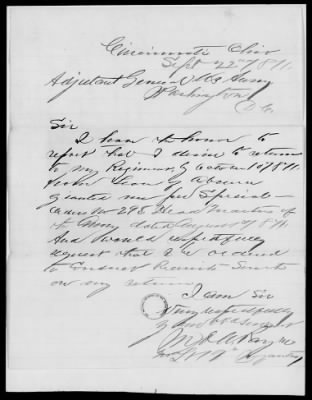 Cincinnati Ohio
Sept 22nd 1871.
Adjutant General U.S. Army
Washington
D.C.
Sir
I have the honor to
report that I desire to return
to my Regiment by October 1st 1871.
from leave of absence
granted me per Special
Orders No 295 Head Quarters of
the Army dated August 1871.
And would respectfully
request that I be ordered
to Conduct Recruits South
on my return
I am Sir
Very respectfully
your obdt servant
Infantry